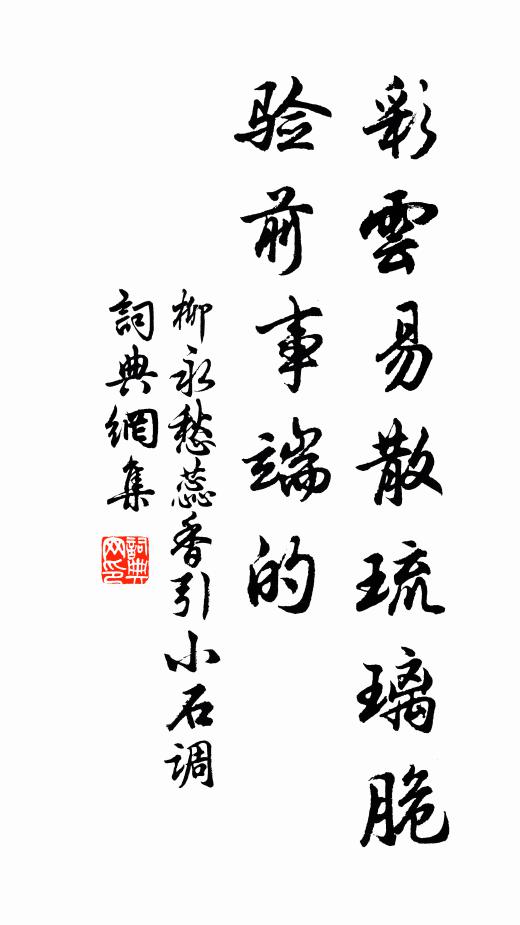 彩雲易散琉璃脆
验前事端的
柳永愁蕊香引小石调
詞典網集
詞典网印